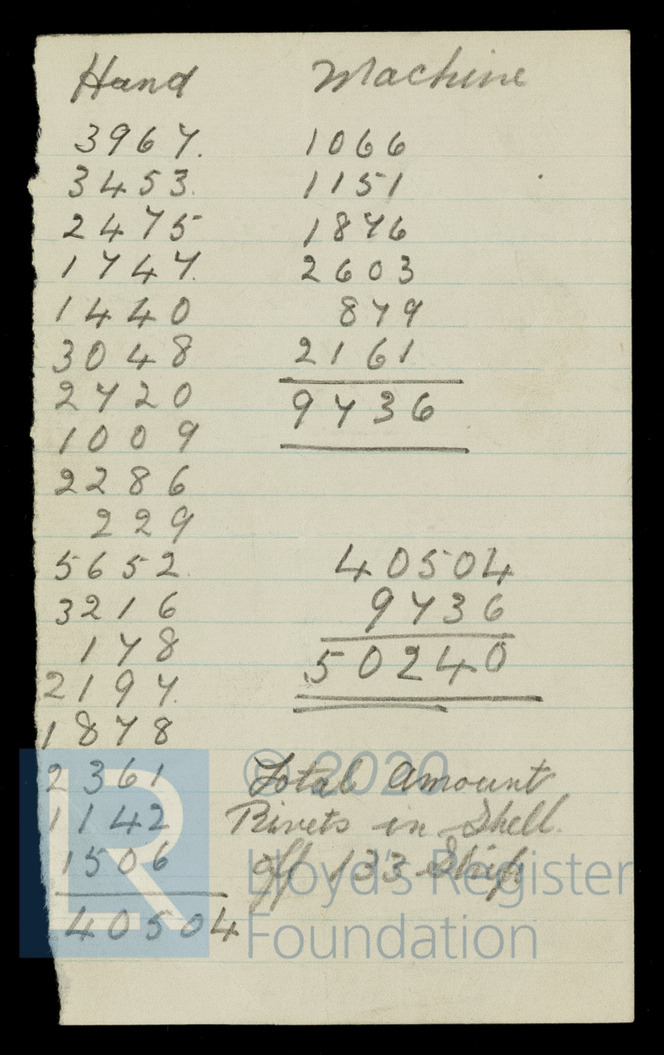 Hand
3967.
3453.
2475
1747.
1440
3048
2720
1009
2286
229
5652.
3216
178
2197.
1878
2361
1142
1506
40504
Machine
1066
1151
1876
2603
879
2161
9736
40504
9736
50240
Total Amount
Rivets in Shell.
off 133 Ship
LR
© 2020
Lloyd's Register
Foundation